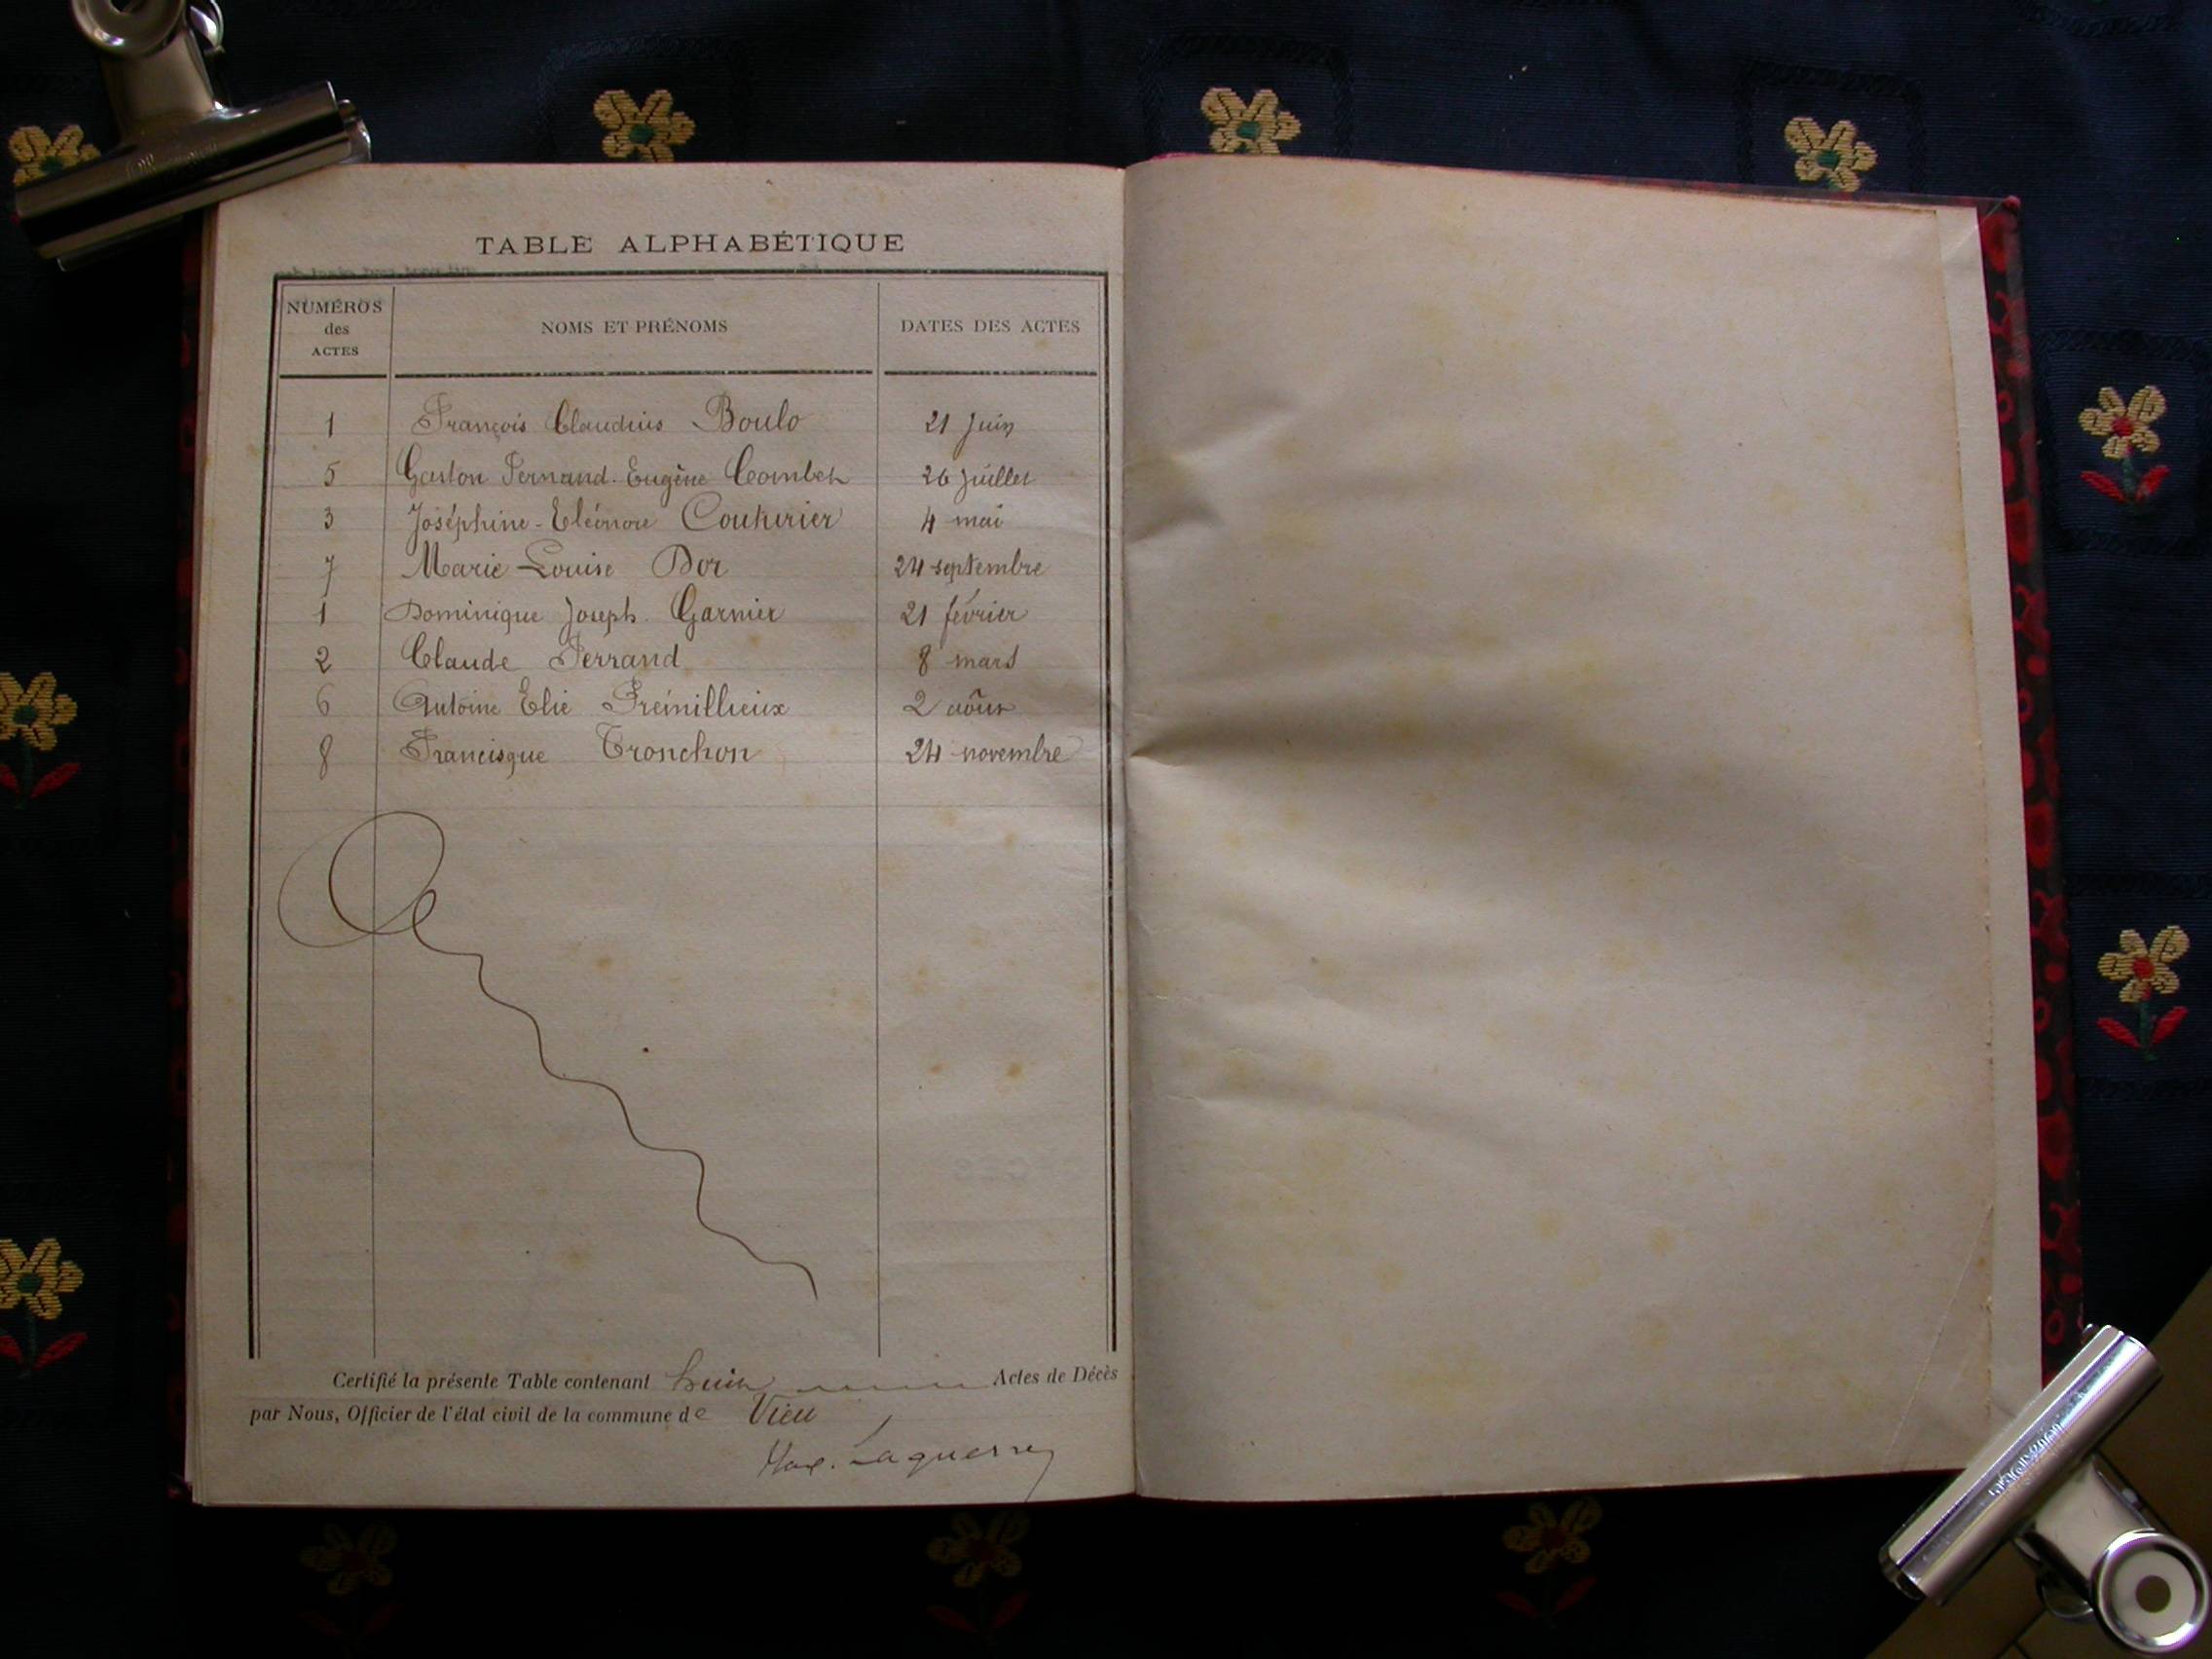 TABLE ALPHABÉTIQUE
NUMÉROS
des
ACTES
NOMS ET PRÉNOMS
DATES DES ACTES
1 François Claudius Boulo 21 juin
5 Gaston Fernand Eugène Combet 26 juillet
3 Joséphine-Eléonore Couturier 4 mai
7 Marie Louise Dor 24 septembre
1 Dominique Joseph Garnier 21 février
2 Claude Perrand 8 mars
6 Antoine Elie Prémillieux 2 août
8 Francisque Tronchon 24 novembre
Certifié la présente Table contenant huit Actes de Décès
par Nous, Officier de l'état civil de la commune de Vieu
Laguerre